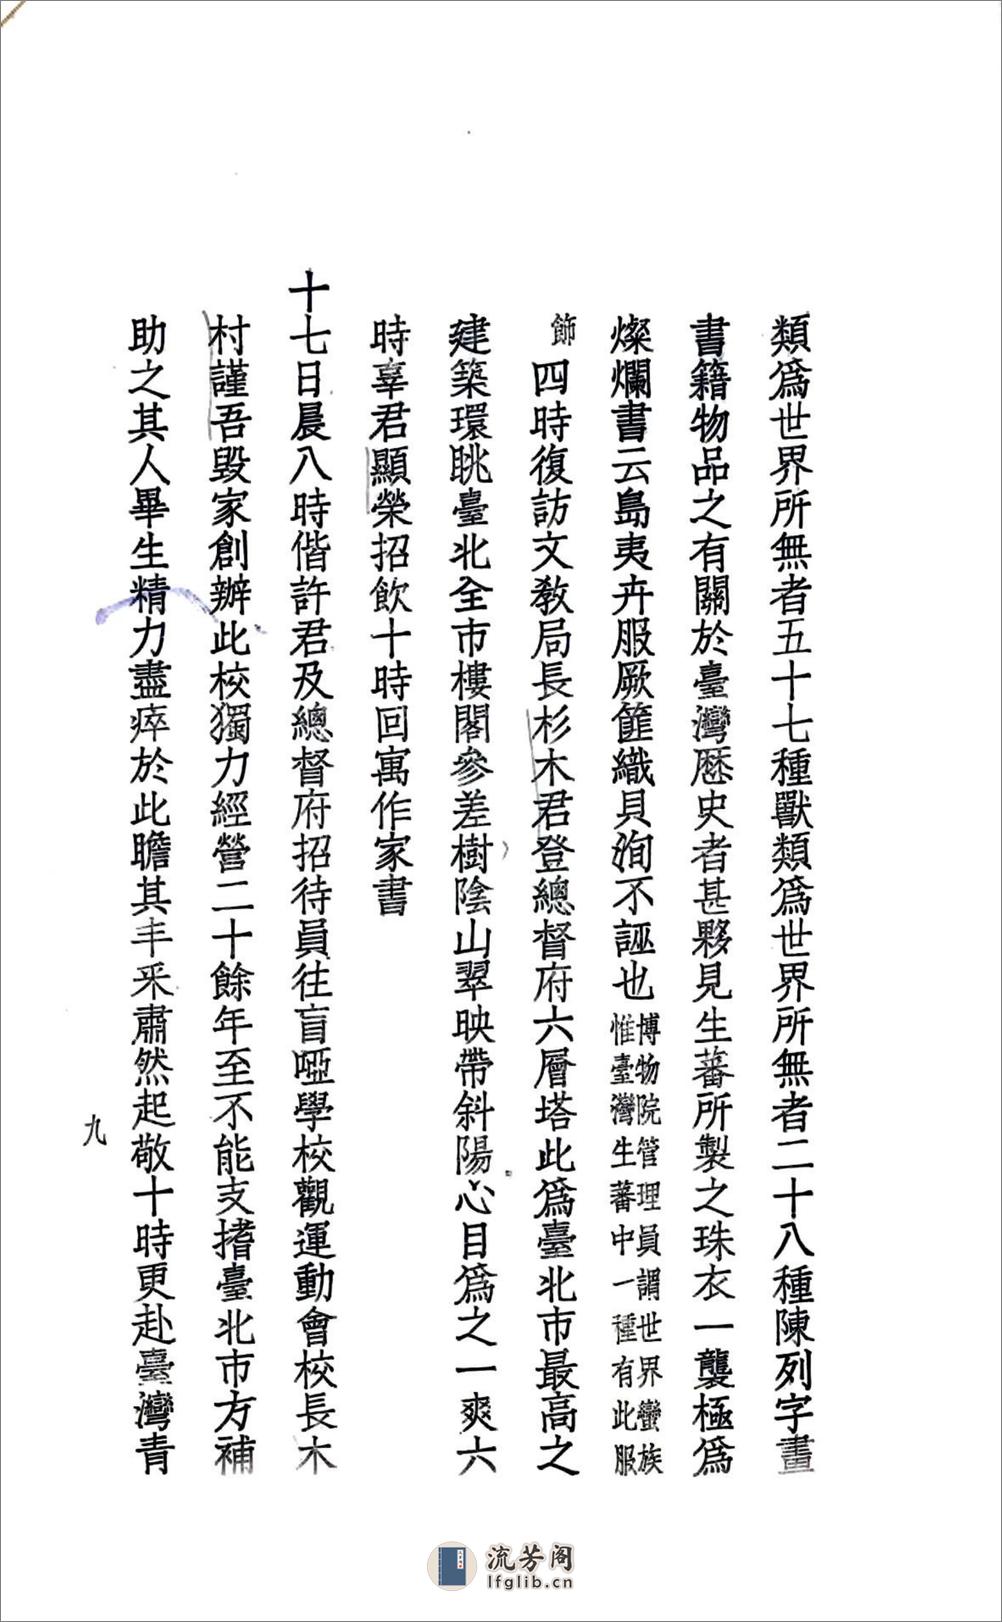 類爲世界所無者五十七種獸類爲世界所無者二十八種陳列字畫
書籍物品之有關於臺灣歷史者甚夥見生蕃所製之珠衣一襲極爲
燦爛書云島夷卉服厥篚織貝洵不誣也博物院管理員謂世界蠻族
惟臺灣生蕃中一種有此服
飾四時復訪文敎局長杉木君登總督府六層塔此爲臺北市最高之
建築環眺臺北全市樓閣參差樹陰山翠映帶斜陽心目爲之一爽六
時辜君顯榮招飲十時回寓作家書
十七日晨八時偕許君及總督府招待員往盲啞學校觀運動會校長木
村謹吾毀家創辦此校獨力經營二十餘年至不能支撐臺北市方補
助之其人畢生精力盡瘁於此瞻其丰采肅然起敬十時更赴臺灣青
九
流芳阁
lfglib.cn